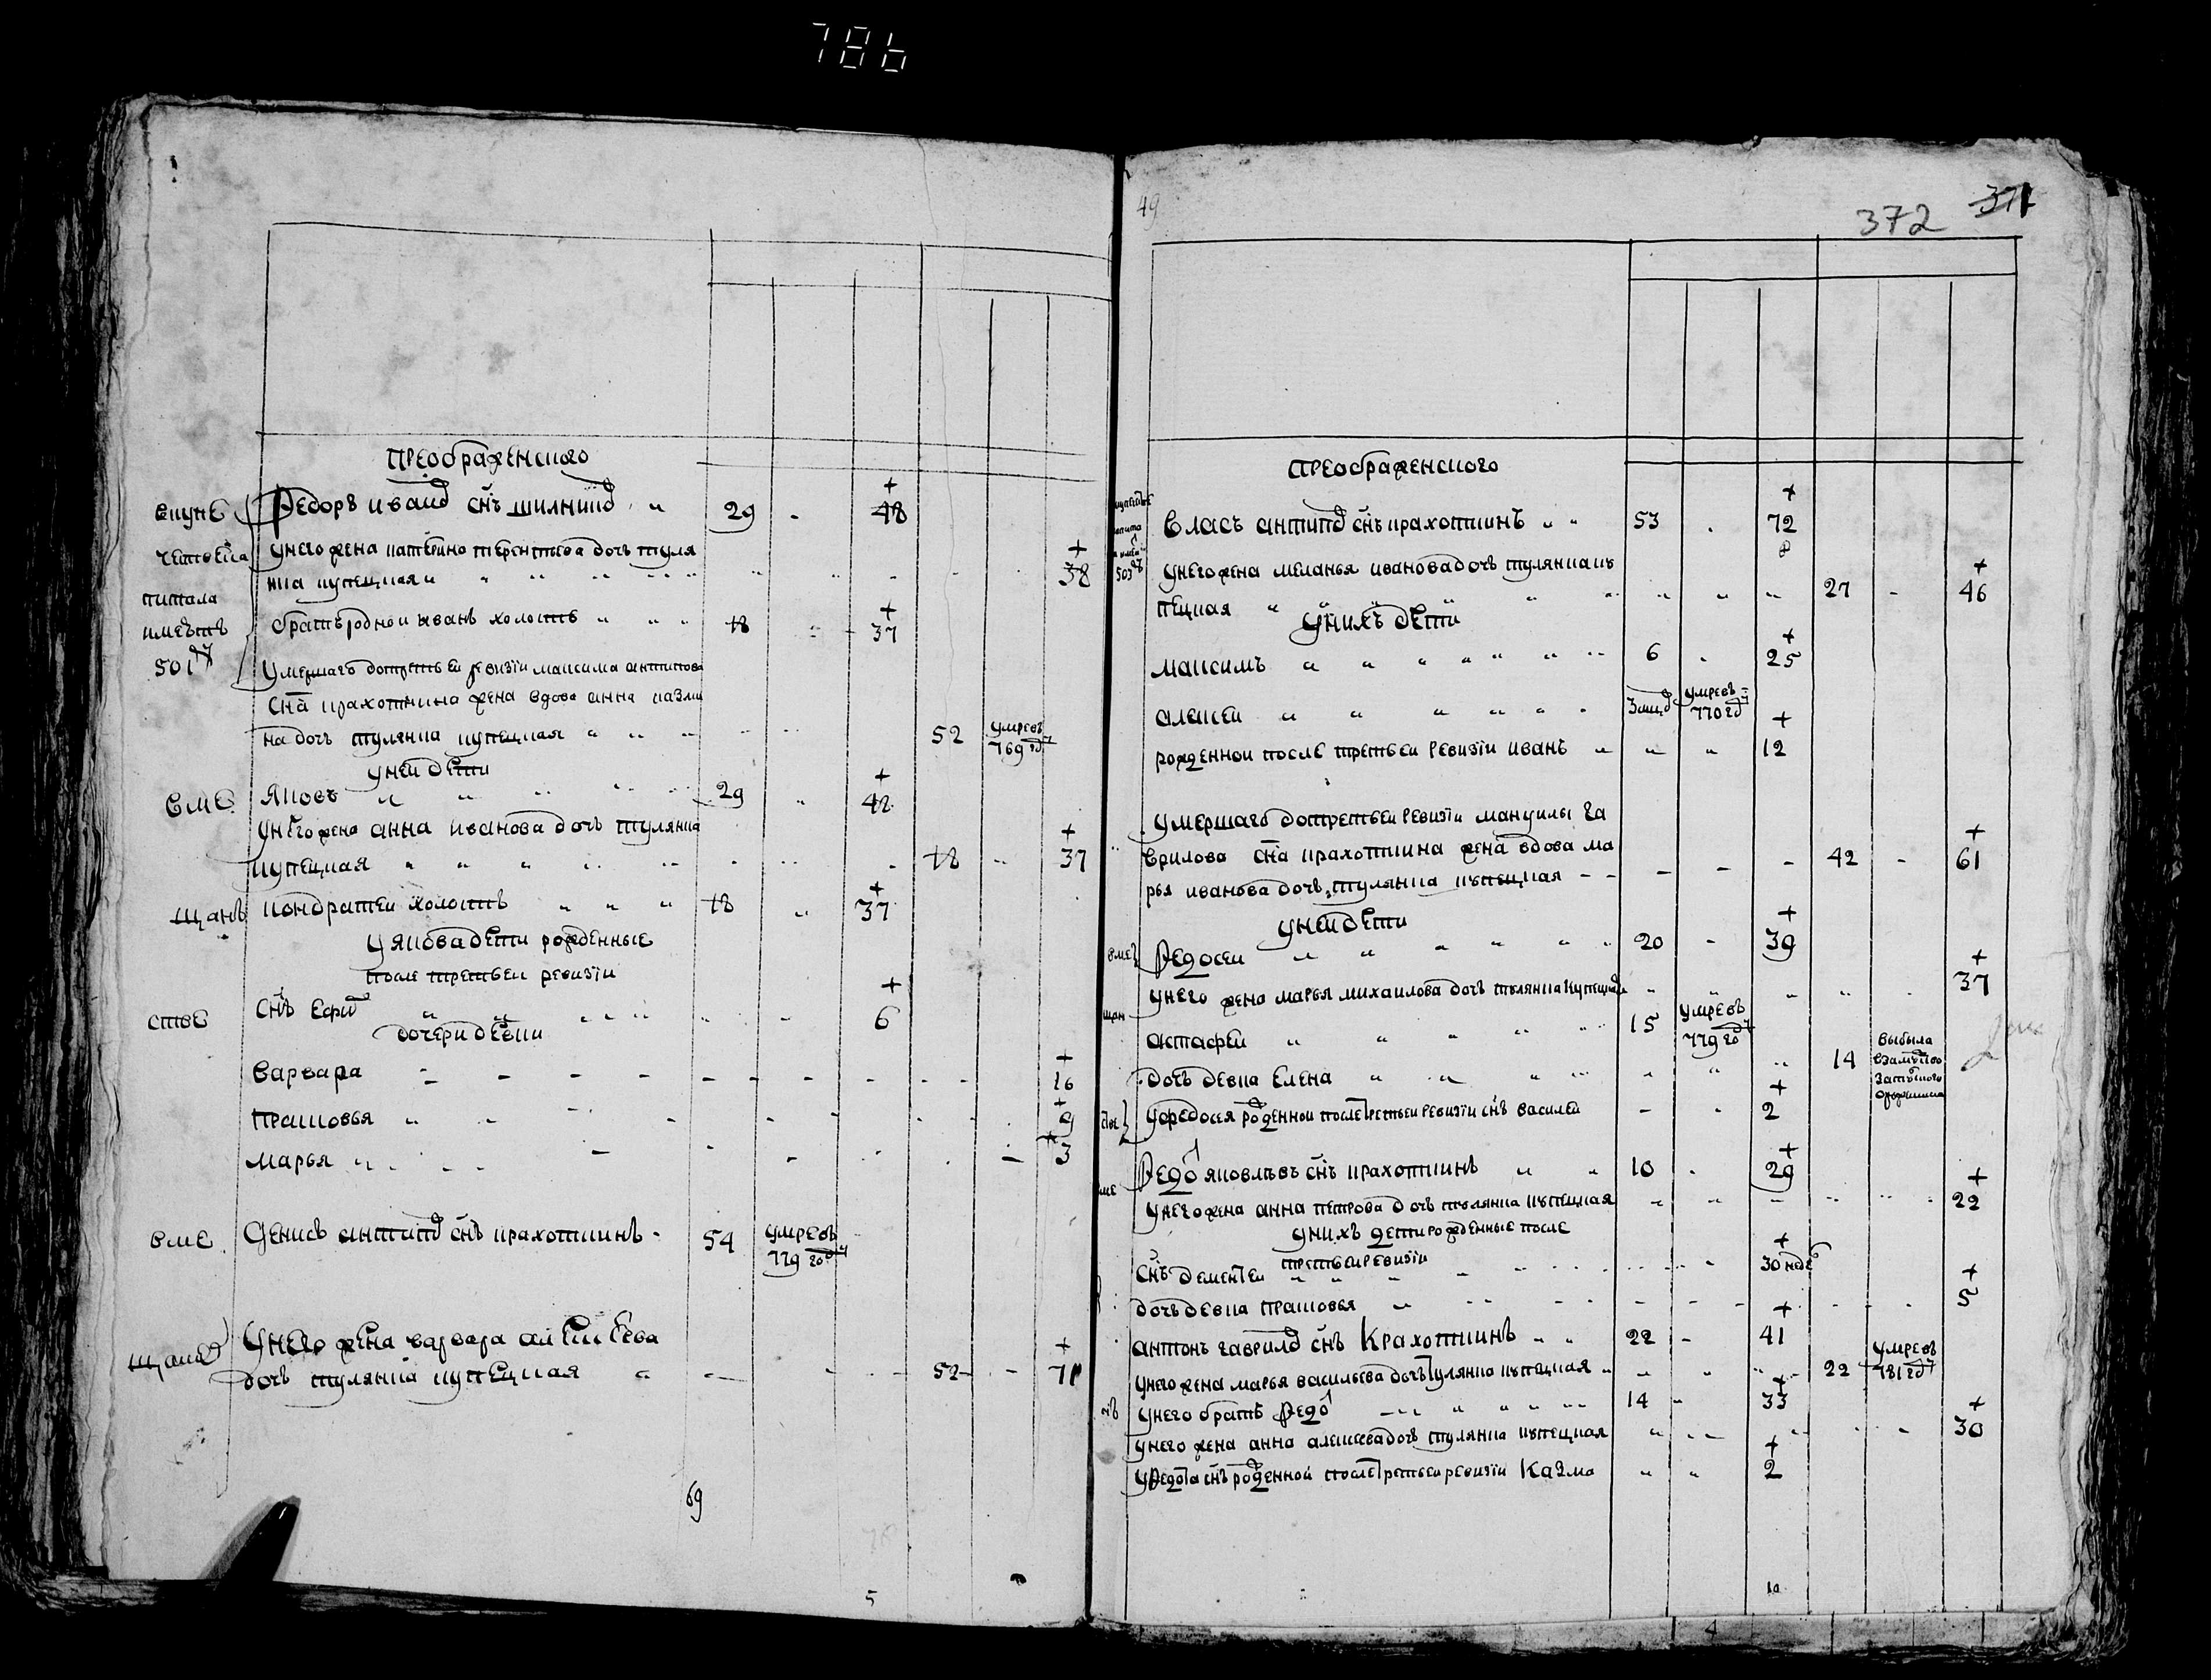 786
преображенского
Федоръ иванов снъ шилкинъ 29 - 48
в купе
унего жена катерина терентьева дочь туля
нка купецкая 38
питала
имеетъ
братъ родной иванъ холостъ 18 37
501
умершаго до третьей ревизіи максима антипова
сна крахоткина жена вдова анна казми
на дочь тулянка купецкая 52 умре въ 769 году
у ней дети
вме Яковъ 29 48
унего жена анна иванова дочь тулянка
купецкая 18 37
щанъ кондратей холостъ 18 37
у якова дети рожденные
после третьей ревизіи
стве снъ Ефим 6
дочери девки
Варвара 16
прасковья 9
марья 3
вме Денисъ антипов снъ крахоткинъ 54 умре въ 779 году
щанъ Унего жена варвара алексеева
дочь тулянка купецкая 52 71
69
5
49
372 371
преображенского
Власъ антипов снъ крахоткинъ 53 72
503
унего жена меланья иванова дочь тулянка ку
пецкая 27 46
у нихъ дети
максимъ 6 25
алексей 3 умре въ 770 году
рожденной после третьей ревизіи иванъ 12
умершаго до третьей ревизіи мануилы га
врилова сна крахоткина жена вдова ма
рья иванова дочь тулянка купецкая 42 61
у ней дети
вме Федосей 20 39
унего жена марья михаилова дочь тулянка купецкая 37
щан астафей 15 умре въ 779 году
дочь девка Елена 14 выбыла
стве у федосея рожденной после третьей ревизіи снъ василей 2
ме Федор яковлевъ снъ крахоткинъ 10 29
унего жена анна петрова дочь тулянка купецкая 22
у нихъ дети рожденные после
третьей ревизіи
снъ дементей 30 недель
дочь девка прасковья 5
антонъ гаврилов снъ Крахоткинъ 22 41
унего жена марья васильева дочь тулянка купецкая 22 умре въ 781 году
унего братъ Федор 14 33
унего жена анна алексеева дочь тулянка купецкая 30
у Федота снъ рожденной после третьей ревизіи Казма 2
10
4